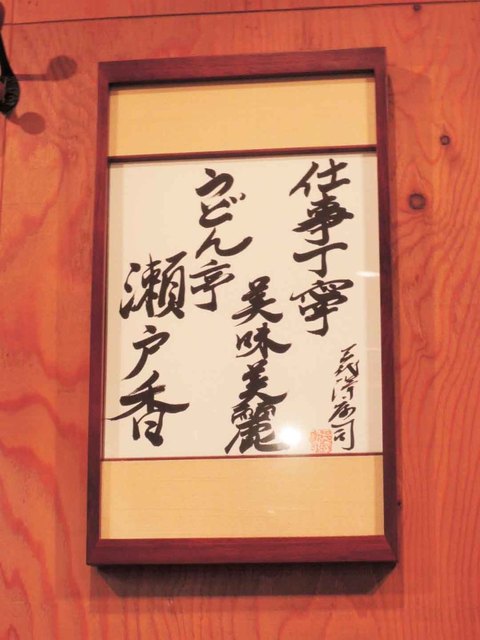 仕事丁寧
美味美麗
うどん亭
瀬戸香